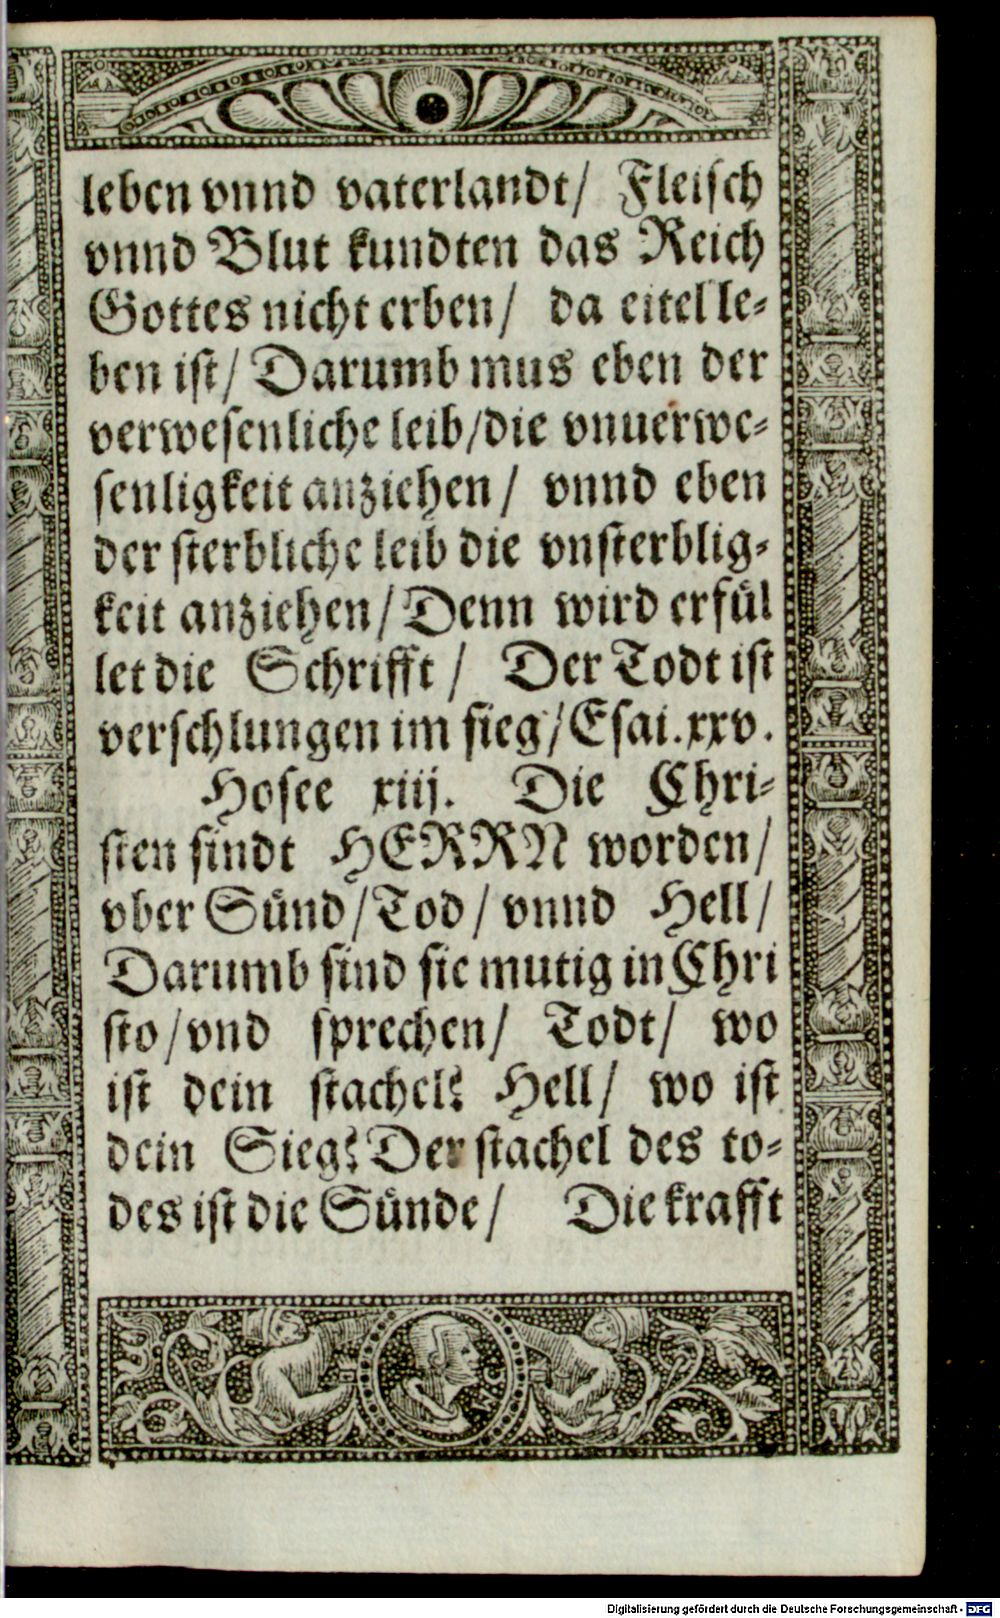 leben vnnd vaterlandt/ Fleisch
vnnd Blut kundten das Reich
Gottes nicht erben/ da eitel le-
ben ist/ Darumb mus eben der
verwesenliche leib/die vnuerwe-
senligkeit anziehen/ vnnd eben
der sterbliche leib die vnsterblig-
keit anziehen/ Denn wird erfül
let die Schrifft/ Der Todt ist
verschlungen im sieg/Esai.xxv.
Hosee xiij. Die Chri-
sten sindt HERRN worden/
vber Sünd/Tod/ vnnd Hell/
Darumb sind sie mutig in Chri
sto/vnd sprechen/ Todt/ wo
ist dein stachel? Hell/ wo ist
dein Sieg? Der stachel des to-
des ist die Sünde/ Die krafft
Digitalisierung gefördert durch die Deutsche Forschungsgemeinschaft - DFG